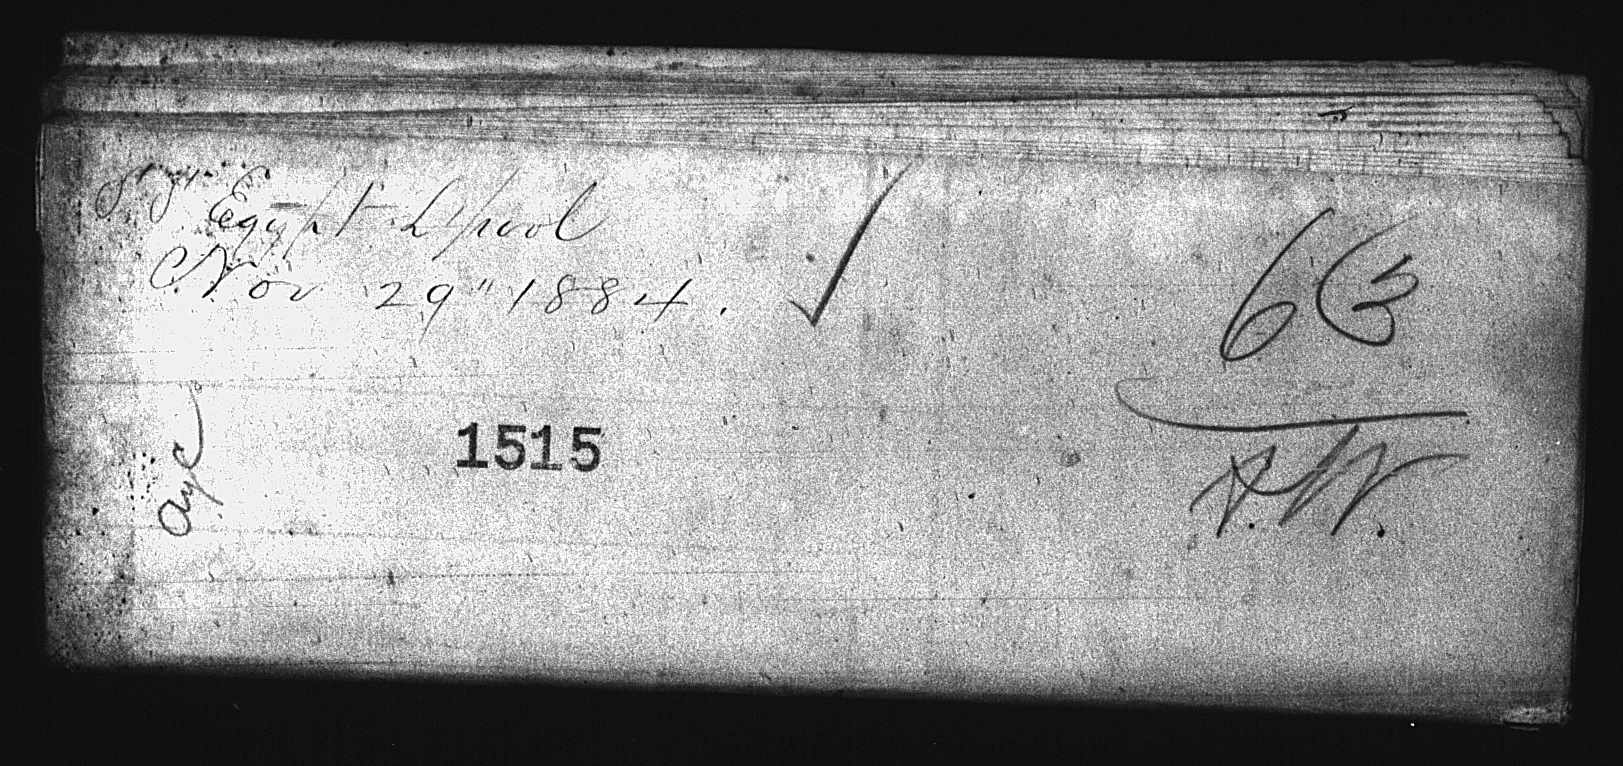 S.S. Egypt L'pool
Nov 29" 1884.
63
1515